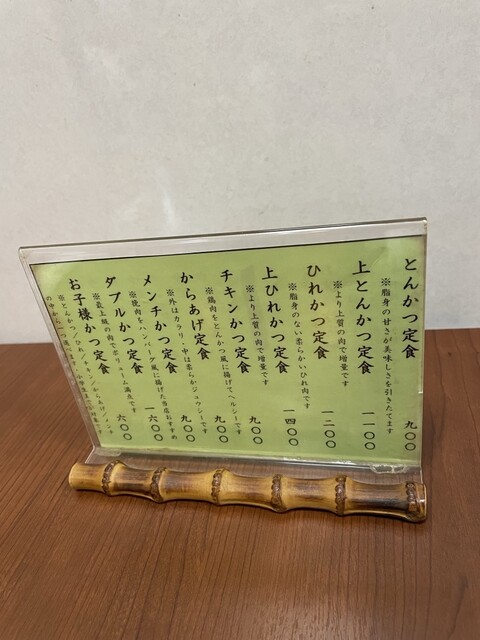 とんかつ定食 九〇〇
※脂身の甘さが美味しさを引きたてます
上とんかつ定食 一一〇〇
※より上質の肉で増量です
ひれかつ定食 一二〇〇
※脂身のない柔らかいひれ肉です
上ひれかつ定食 一四〇〇
※より上質の肉で増量です
チキンかつ定食 九〇〇
※鶏肉をとんかつ風に揚げてヘルシーです
からあげ定食 九〇〇
※外はカラリ・中は柔らかジューシーです
メンチかつ定食 九〇〇
※挽肉をハンバーグ風に揚げた当店おすすめ
ダブルかつ定食 一六〇〇
※最上級の肉でボリューム満点です
お子様かつ定食 六〇〇
※とんかつ/ひれ/チキン/からあげ/メンチ
の中から一つ選